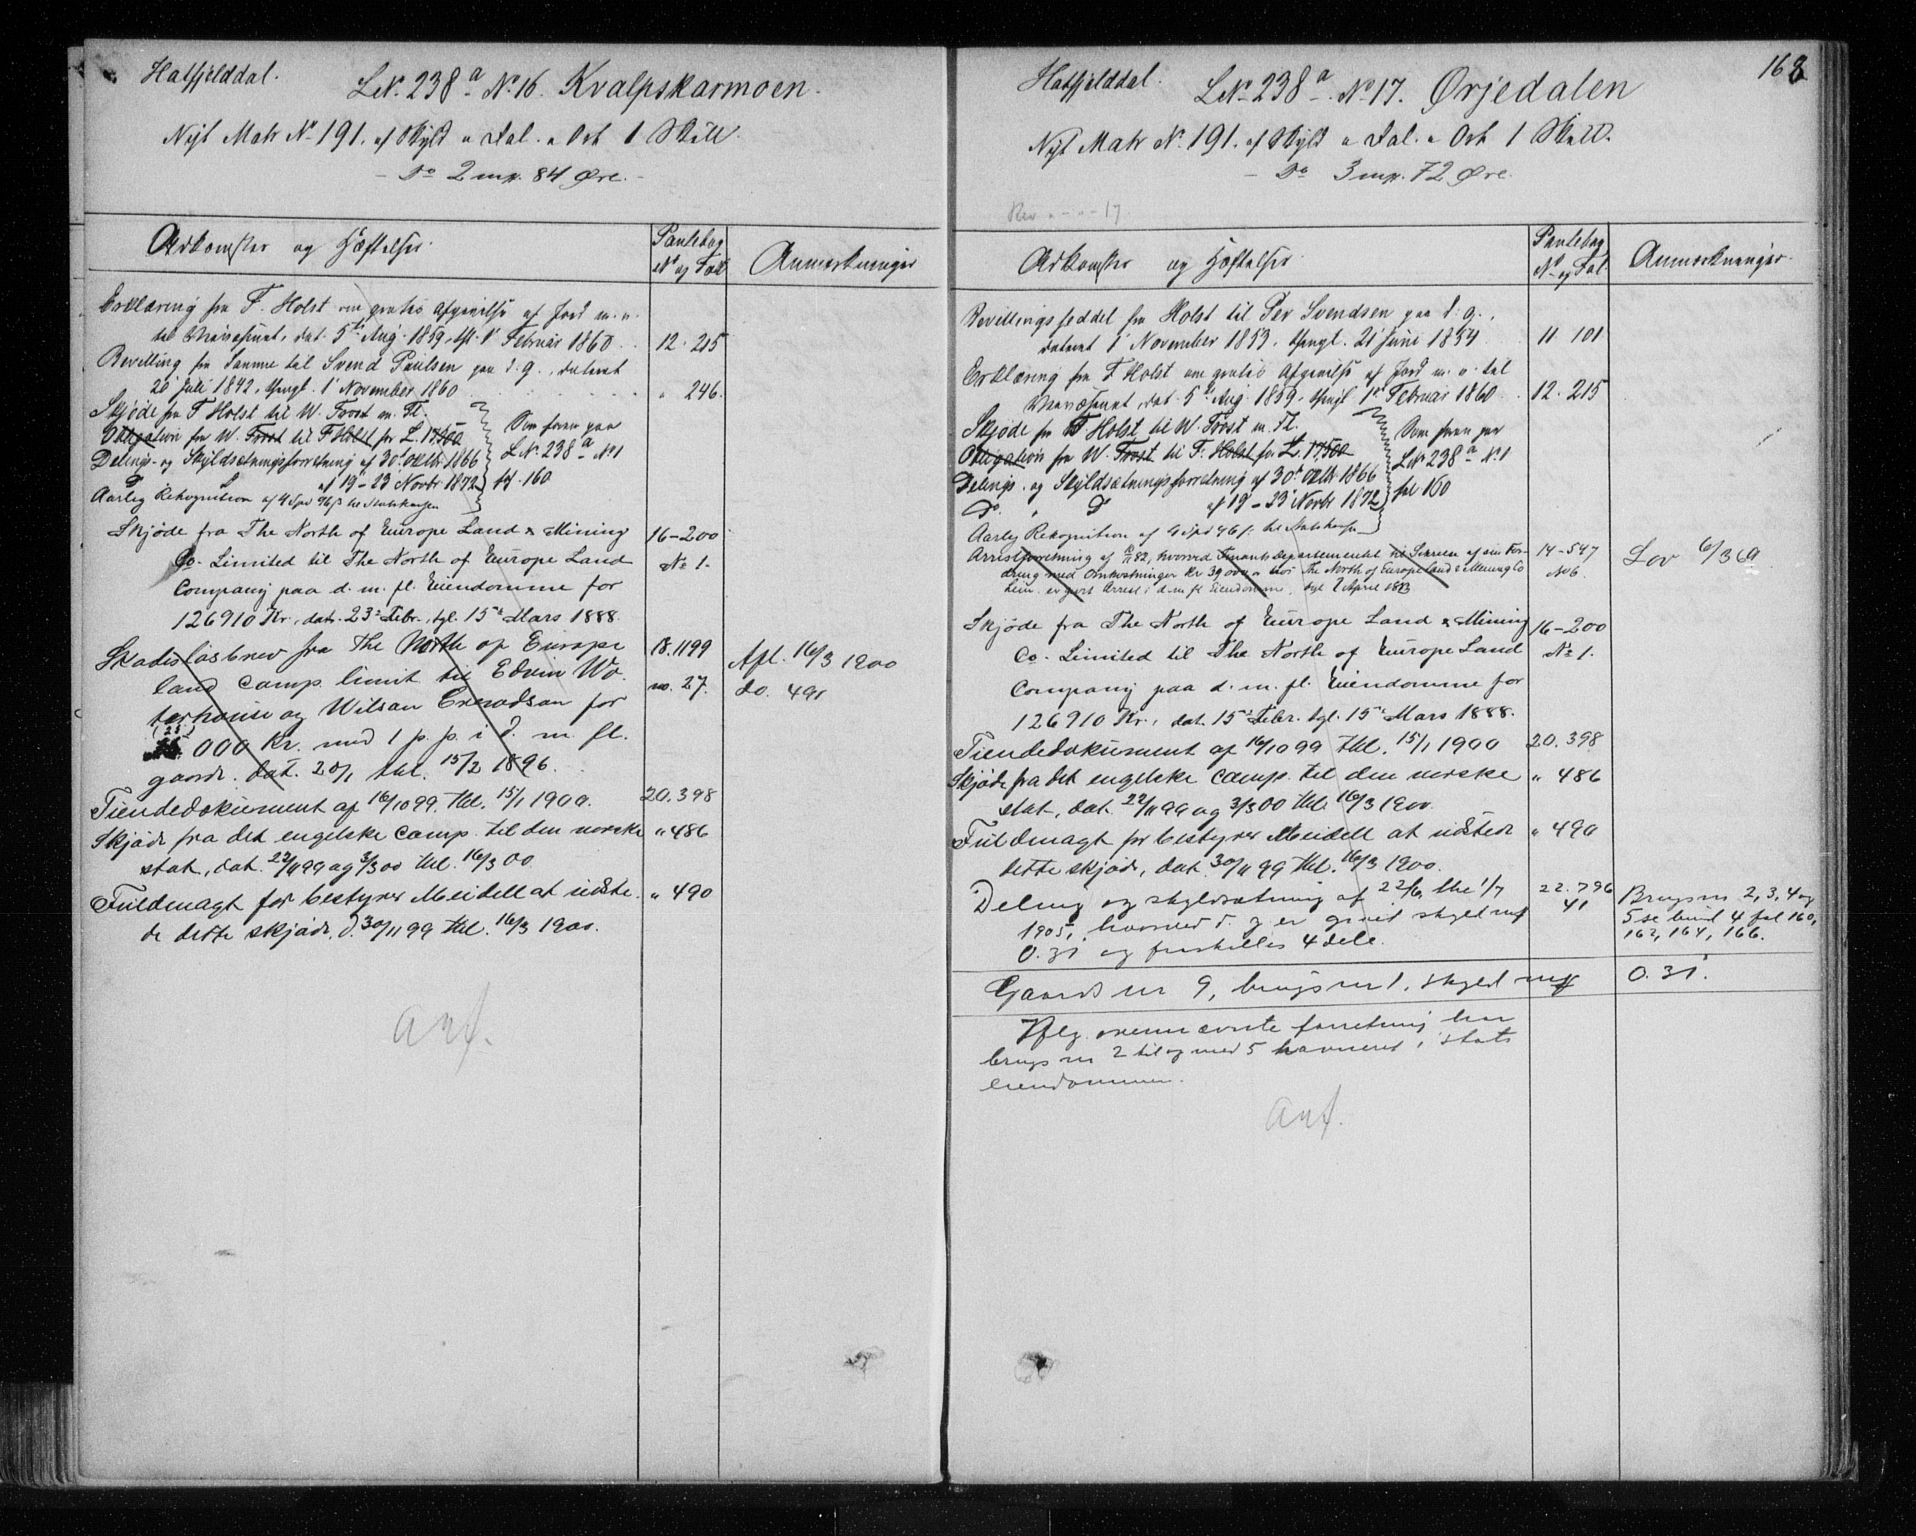 Hatfjelddal.
LNr. 238 a No 16. Kvalpskarmoen.
Nyt Matr No 191. af Skyld " Dal. " Ort 1 Skill
- Do 2 mrk. 84 Øre. -
Adkomster og Hæftelser.
Pantebog
No og Fol
Anmærkninger
Erklæring fra F. Holst om gratis Afgivelse af Jord m. v.
til Veivæsenet, dat. 5te Aug. 1859, thl. 1 Februar 1860 . . 12. 215
Bevilling fra Samme til Svend Paulsen paa d. g., dateret
20 Juli 1842, thingl. 1 November 1860 . . . . " 246.
Skjøde fra F Holst til W. Frost m. Fl.
Obligation fra W. Frost til F Holst for L. 17500
Delings- og Skyldsætningsforretning af 30t Oktbr 1866
D af 19-23 Novbr 1872
Som foran paa
L No 238 a No 1
fol. 160
Aarlig Rekognition af 4 Spd 96 s til Statskassen
Skjøde fra The North of Europe Land & Mining 16-200
Co. Limited til The North of Europe Land No 1.
Company paa d. m. fl. Eiendomme for
126910 Kr., dat. 23de Febr., tgl. 15de Mars 1888.
Skadesløsbrev fra The North op Europe 18. 1199
land Camp. limit til Edvin Wa- no. 27.
terhouse og Wilsan Crewdsan for
(25)
000 Kr. med 1 p. p. i d. m. fl.
gaarde. dat. 20/1 thl. 15/2 1896.
Afl. 16/3 1900
do. 491
Tiendedokument af 16/10 99. thl. 15/1 1900. 20. 398
Skjøde fra det engelske Camp. til den norske " 486
stat, dat. 22/11 99 og 3/3 00 thl. 16/3 00
Fuldmagt for bestyrer Meidell at udste- " 490
de dette skjøde, d. 30/11 99 thl. 16/3 1900.
Anf.
168
Hatfjelddal.
LNo 238 a No 17. Ørjedalen
Nyt Matr No. 191. af Skyld " Dal. " Ort 1 Skill.
- Do 3 mrk. 72 Øre.
Rev " - " - 17
Adkomster og Hæftelser.
Pantebog
No og Fol
Anmærkninger.
Bevillingsseddel fra Holst til Per Svendsen paa d. g.,
dateret 1 November 1853. thingl. 21 Juni 1854 . . 11. 101
Erklæring fra F Holst om gratis Afgivelse af Jord m. v. til
Veivæsenet, dat. 5te Aug 1859. thingl 1st Februar 1860 . . 12. 215
Skjøde fra F Holst til W. Frost m. Fl.
Obligation fra W. Frost til F. Holst for L. 17500
Delings- og Skyldsætningsforretning af 30t Oktbr 1866
D. " D af 19-23 Novbr 1872
Som foran paa
L No 238 a No 1
fol 160
Aarlig Rekognition af 4 Spd 46 s. til Statskassen
Arrestforretning af 82, hvorved Finantsdepartementet til Sikkerhed af sin For- 14-547
dring med Omkostninger Kr 39,000 " hos The North of Europe land & Mining Co No 6.
Lim. er gjort Arrest i d. m. fl Eiendomme, tgl 7 April 1883
Lov 6/3 69
Skjøde fra The North of Europe Land & Mining 16-200
Co. Limited til The North of Europe Land No 1.
Company paa d. m. fl. Eiendomme for
126910 Kr., dat. 15de Febr. tgl. 15de Mars 1888.
Tiendedokument af 16/10 99 thl. 15/1 1900 20. 398
Skjøde fra det engelske Camp. til den norske " 486
stat, dat. 22/11 99 og 3/3 00 thl. 16/3 1900.
Fuldmagt for bestyrer Meidell at udstede " 490
dette skjøde, dat. 30/11 99 thl. 16/3 1900.
Deling og skyldsætning af 22/6 thl 1/7 22. 796
1905, hvorved d. g er givet skyld mrk 41
0.31 og fraskilles 4 dele.
Brugs nr 2, 3, 4 og
5 se bind 4 fol 160,
162, 164, 166.
Gaards nr 9, brugs nr 1, skyld mrk 0.31.
Iflg. ovennævnte forretning har
brugs nr 2 til og med 5 havneret i stats
eiendommen.
Anf.